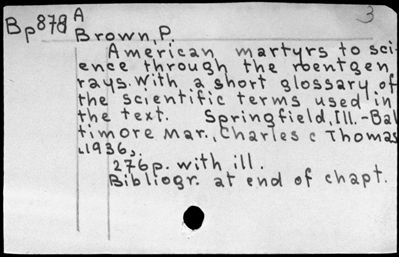 3
Bp878 A
Brown, P.
American martyrs to sci-
ence through the roentgen
rays. With a short glossary of
the scientific terms used in
the text. Springfield, Ill. - Bal
timore Mar., Charles c Thomas
[1936].
276p. with ill.
Bibliogr. at end of chapt.